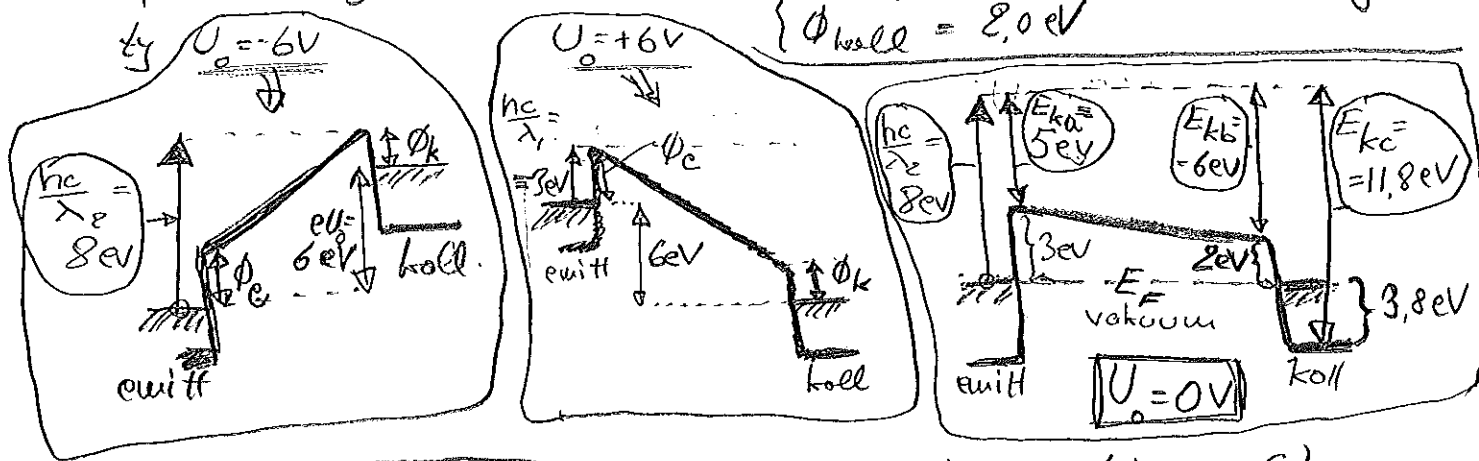 Φkoll = 2,0 eV
ty U₀ = -6V
hc/λ₂ = 8eV
Φe
eU₀ = 6eV
Φk
koll.
emitt
U₀ = +6V
hc/λ₁ = 3eV
Φe
emitt
6eV
Φk
koll
hc/λ₂ = 8eV
Eka = 5eV
Ekb = 6eV
Ekc = 11,8eV
3eV
2eV
EF
vakuum
3,8eV
emitt
koll
U₀ = 0V